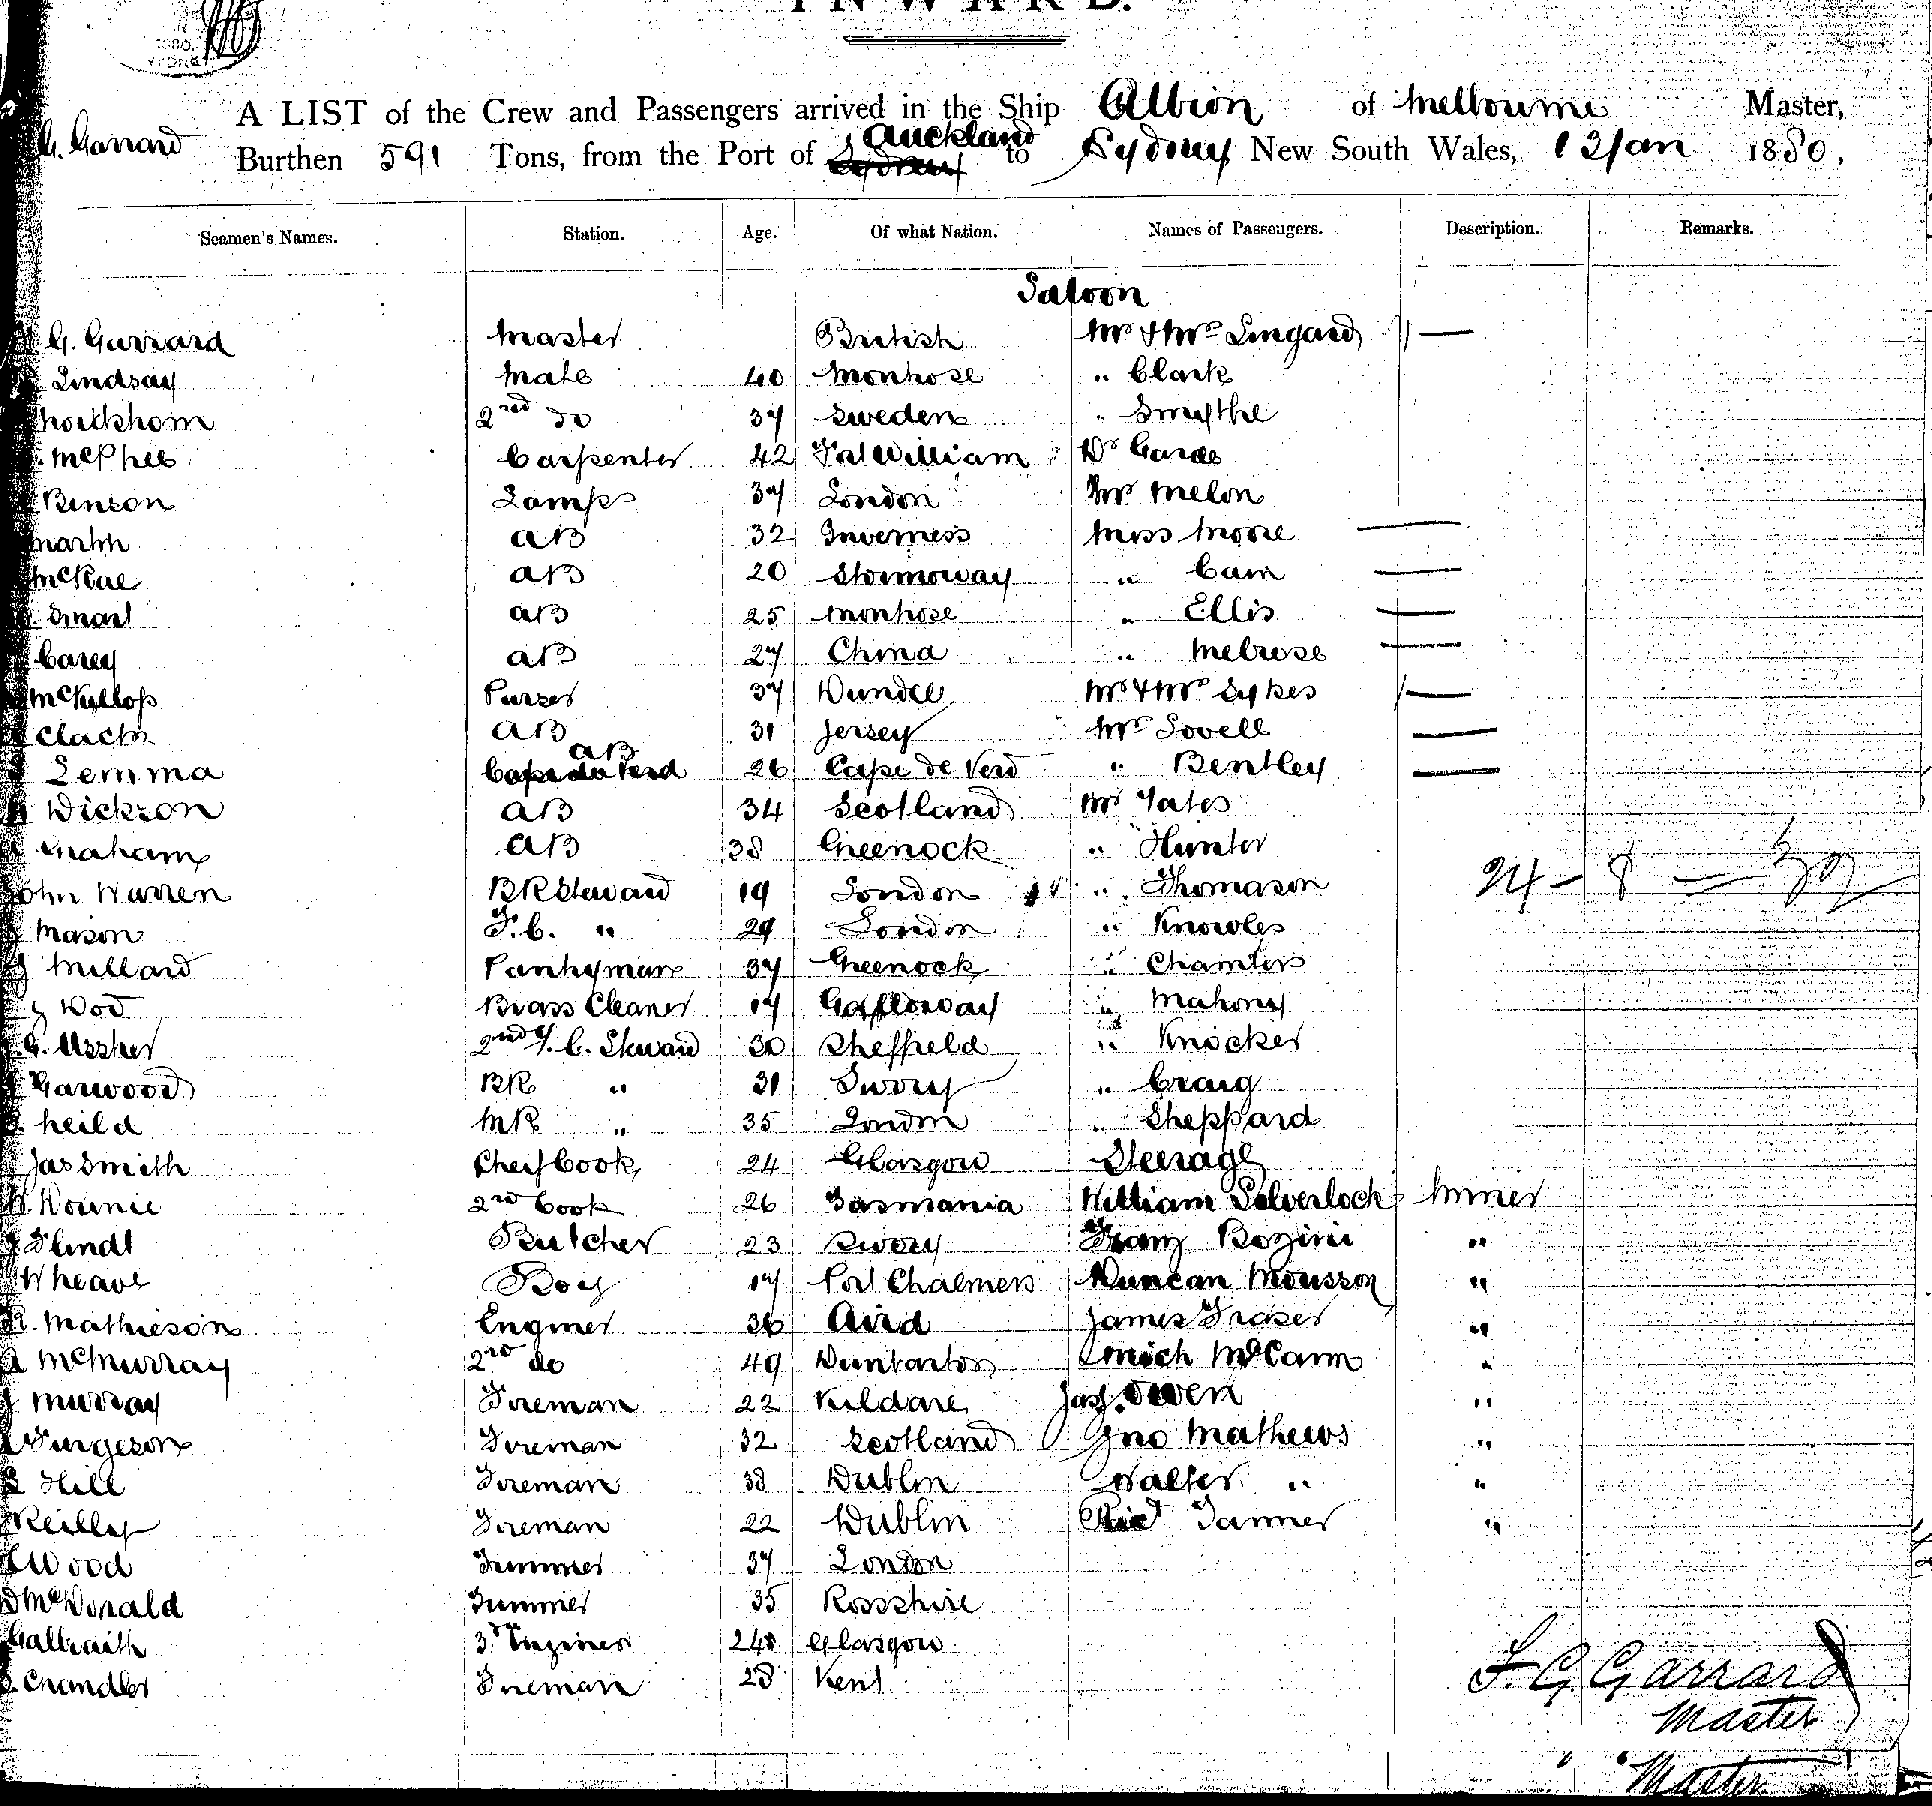 INWARD.
A LIST of the Crew and Passengers arrived in the Ship Albion of Melbourne Master,
G. Garrard Burthen 591 Tons, from the Port of Sydney Auckland to Sydney New South Wales, 12 Jan 1880,
Seamen's Names. Station. Age. Of what Nation. Names of Passengers. Description. Remarks.
Saloon
G. Garrard Master British Mr & Mrs Lingard
Lindsay Mate 40 Montrose " Clark
2nd do 37 Sweden " Smythe
McPhee Carpenter 42 Fort William Dr Garde
Benson Lamps 37 London Mr Melon
Martin AB 32 Inverness Miss Moore
McRae AB 20 Stornoway " Cam
Smart AB 25 Montrose " Ellis
Carey AB 27 China " Melrose
McKillop Purser 37 Dundee Mr & Mrs Sykes
Clack AB 31 Jersey Mrs Lovell
Lemma Cape de Verd AB 26 Cape de Verd " Bentley
Dickson AB 34 Scotland Mr Yates
Graham AB 38 Greenock " Hunter
John Warren BR Steward 19 London " Thomason
Mason F.C. " 29 London " Knowles
Millard Pantryman 37 Greenock " Chambers
Dod Brass Cleaner 17 Galloway " Mahony
G. Ussher 2nd F.C. Steward 30 Sheffield " Knocker
Garwood BR " 31 " Craig
Heild MR " 35 London " Sheppard
Jas Smith Chef Cook 24 Glasgow Steerage
Downie 2nd Cook 26 Tasmania William Silverlock Miner
Flindt Butcher 23 Franz Bozini "
W Heave Boy 17 Port Chalmers Duncan Mousson "
R. Mathieson Enginer 36 Aird James Fraser "
A McMurray 2nd do 49 Dunbarton Mich McCann "
J Murray Fireman 22 Kildare Jas. Owen "
Furgeson Fireman 32 Scotland Jno Mathews "
Hill Fireman 38 Dublin Walter " "
Reilly Fireman 22 Dublin Ricd Tanner "
Wood Trimmer 37 London
D McDonald Trimmer 35 Rossshire
Galbraith 3rd Enginer 24 Glasgow
Chandler Fireman 28 Kent
F. G. Garrard
Master
" Master